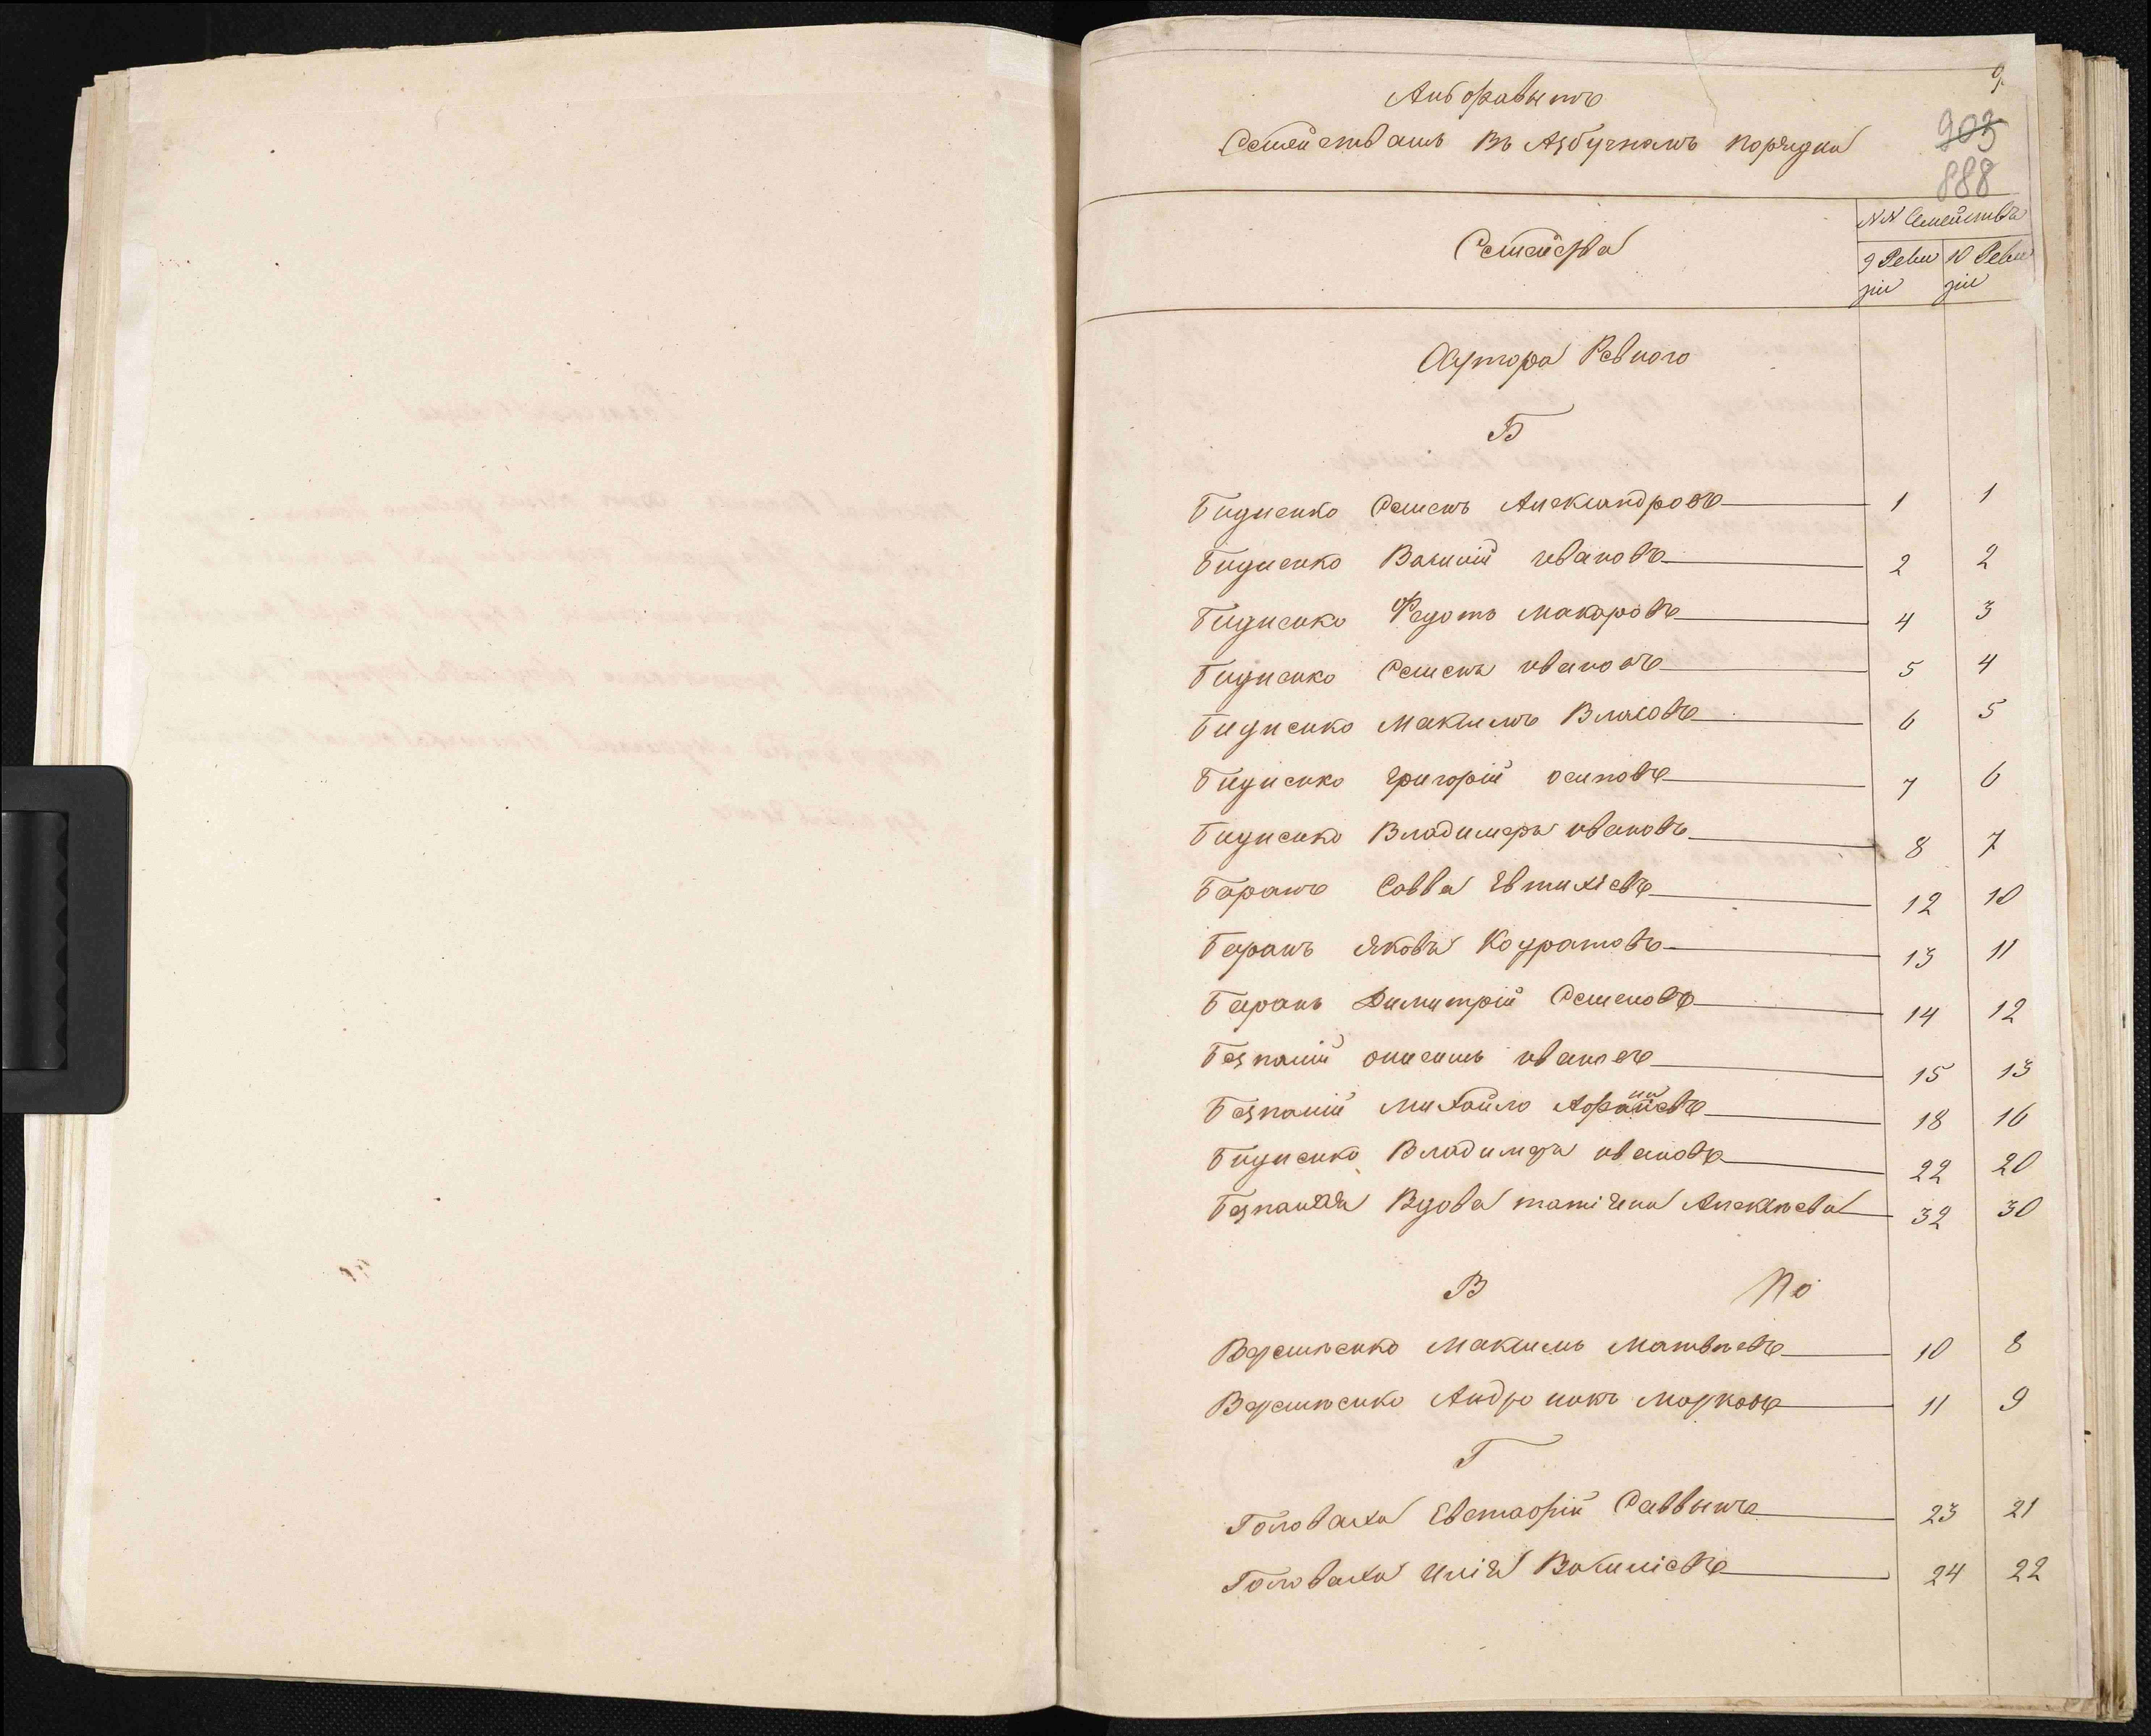 9
Алфавытъ
Семействамъ Въ Азбучномъ порядки
903
888
Семейства
№№ Семействъ
9 Реви 10 Реви
зіи зіи
Хутора Ровного
Б
Бидненко Семенъ Александровъ 1 1
Бидненко Василій ивановъ 2 2
Бидненко Федотъ Макаровъ 4 3
Бидненко Семенъ ивановъ 5 4
Бидненко Максимъ Власовъ 6 5
Бидненко григорій осиповъ 7 6
Бидненко Владимеръ ивановъ 8 7
Баранъ Савва Евтихіевъ 12 10
Баранъ Яковъ Кодратовъ 13 11
Баранъ Димитрій Семеновъ 14 12
Безпалій онисимъ ивановъ 15 13
Безпалій Михайло 18 16
Бидненко Владимеръ ивановъ 22 20
Вдова татіяна Алексѣева 32 30
В
Веремѣенко Максимъ Матвѣевъ 10 8
Веремѣенко Андроникъ Марковъ 11 9
Г
Головаха Евстафій Саввынъ 23 21
Головаха илія Василіевъ 24 22